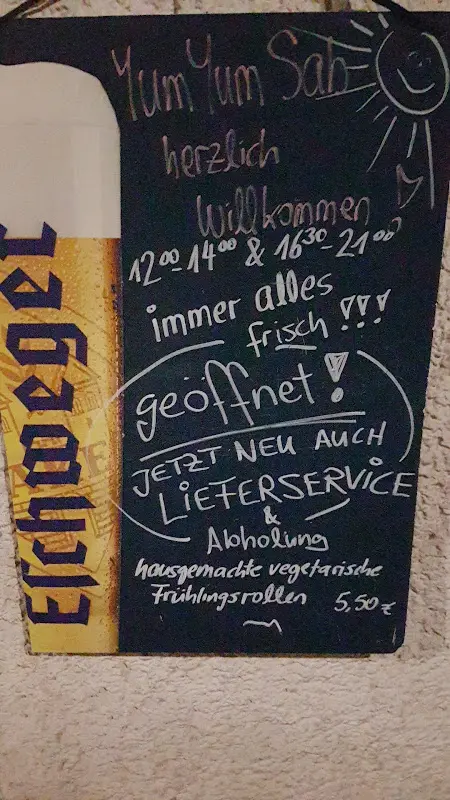 Yum Yum Sab
herzlich
Willkommen
12⁰⁰-14⁰⁰ & 16³⁰-21⁰⁰
immer alles
frisch !!!
geöffnet!
JETZT NEU AUCH
LIEFERSERVICE
&
Abholung
hausgemachte vegetarische
Frühlingsrollen 5,50 €
Eschweger